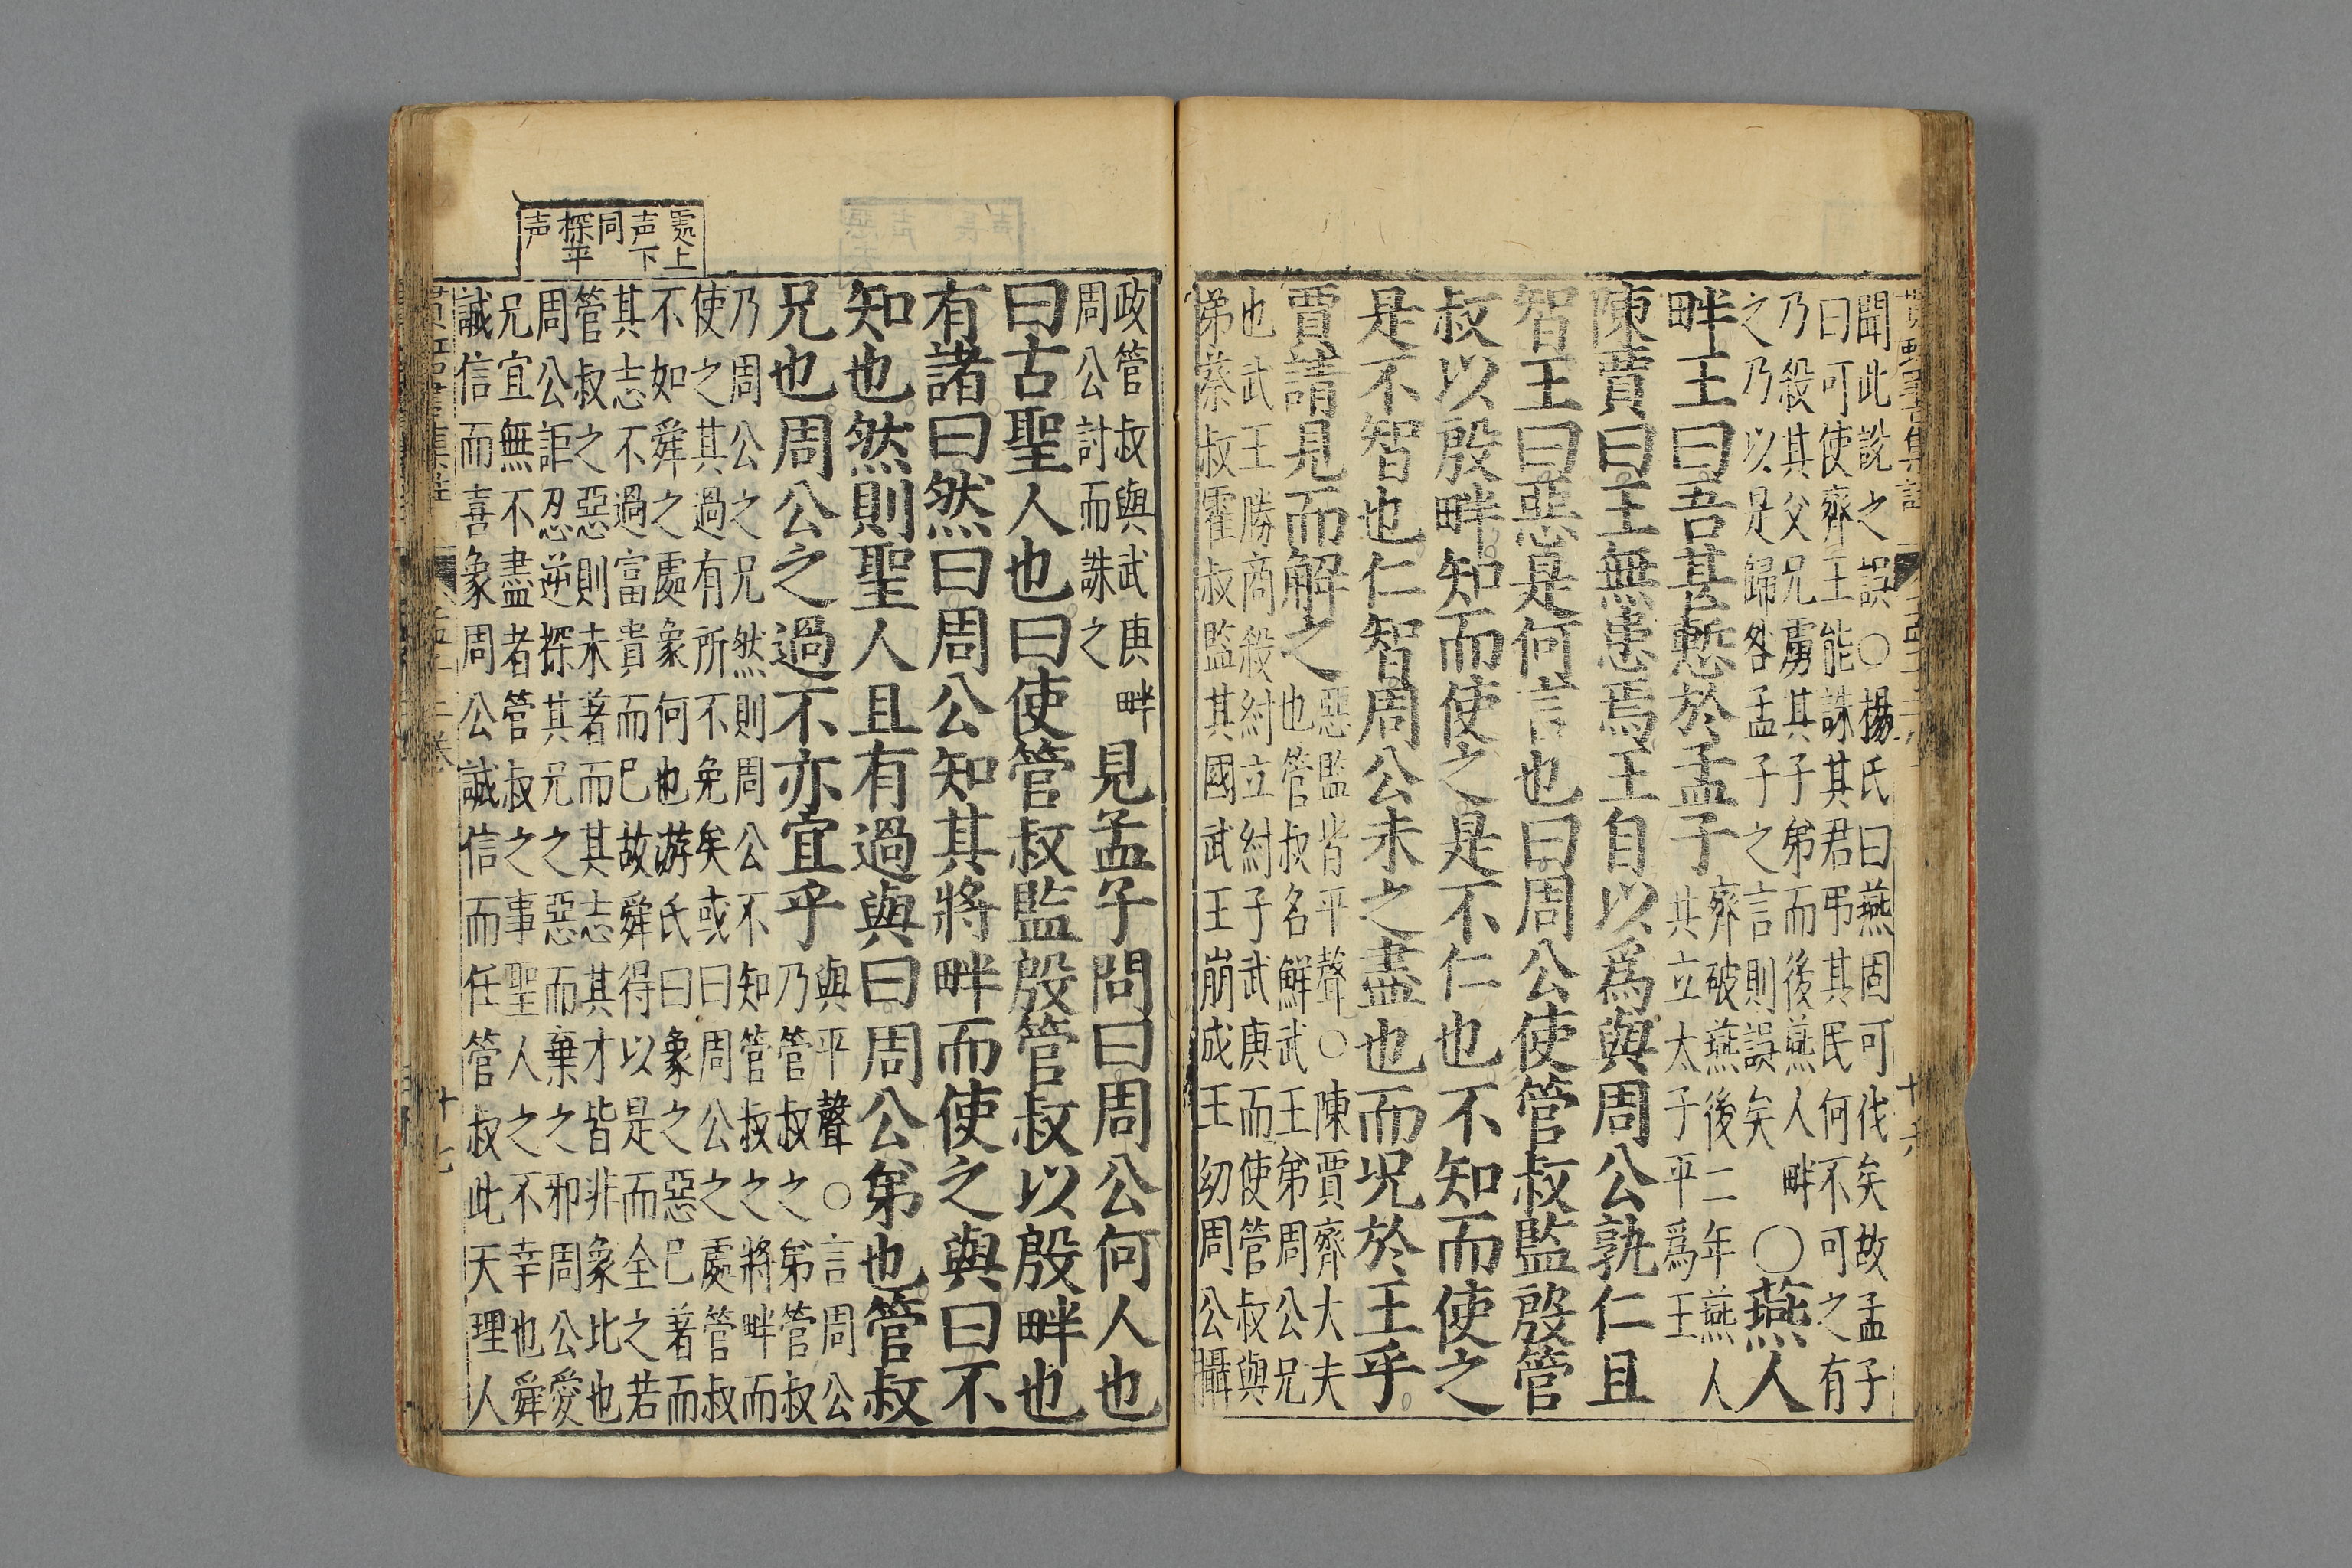 聞此說之誤○楊氏曰燕固可伐矣故孟子
曰可使齊王能誅其君弔其民何不可之有
乃殺其父兄虜其子弟而後燕人畔
之乃以是歸咎孟子之言則誤矣
○燕人
畔王曰吾甚慙於孟子
齊破燕後二年燕人
共立太子平爲王
陳賈曰王無患焉王自以爲與周公孰仁且
智王曰惡是何言也曰周公使管叔監殷管
叔以殷畔知而使之是不仁也不知而使之
是不智也仁智周公未之盡也而況於王乎
賈請見而解之
惡監皆平聲○陳賈齊大夫
也管叔名鮮武王弟周公兄
也武王勝商殺紂立紂子武庚而使管叔與
弟蔡叔霍叔監其國武王崩成王幼周公攝
政管叔與武庚畔
周公討而誅之
見孟子問曰周公何人也
曰古聖人也曰使管叔監殷管叔以殷畔也
有諸曰然曰周公知其將畔而使之與曰不
知也然則聖人且有過與曰周公弟也管叔
兄也周公之過不亦宜乎
與平聲○言周公
乃管叔之弟管叔
乃周公之兄然則周公不知管叔之將畔而
使之其過有所不免矣或曰周公之處管叔
不如舜之處象何也游氏曰象之惡已著而
其志不過富貴而已故舜得以是而全之若
管叔之惡則未著而其志其才皆非象比也
周公詎忍逆探其兄之惡而棄之邪周公愛
兄宜無不盡者管叔之事聖人之不幸也舜
誠信而喜象周公誠信而任管叔此天理人
處上
声下
同
探平
声
十七